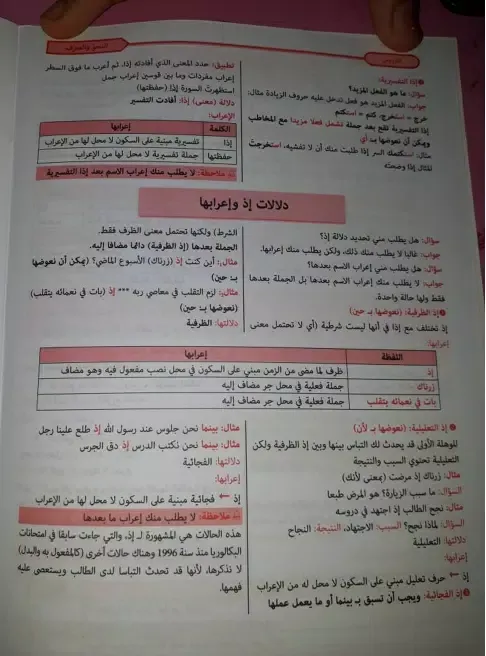 النحو والصرف
❸إذا التفسيرية:
سؤال: ما هو الفعل المزيد؟
جواب: الفعل المزيد هو فعل تدخل عليه حروف الزيادة مثال:
خرج = استخرج، كتم = استكتم
إذا التفسيرية تقع بعد جملة تشمل فعلا مزيدا مع المخاطب
ويمكن أن نعوضها بـ أي
مثال: استكتمتك السر إذا طلبت منك أن لا تفشيه، استخرجت
المثال إذا وضحته
تطبيق: حدد المعنى الذي أفادته إذا، ثم أعرب ما فوق السطر
إعراب مفردات وما بين قوسين إعراب جمل
استظهرت السورة إذا (حفظتها)
دلالة (معنى) إذا: أفادت التفسير
الإعراب:
الكلمة إعرابها
إذا تفسيرية مبنية على السكون لا محل لها من الإعراب
حفظتها جملة تفسيرية لا محل لها من الإعراب
ملاحظة: لا يطلب منك إعراب الاسم بعد إذا التفسيرية
دلالات إذ وإعرابها
سؤال: هل يطلب مني تحديد دلالة إذ؟
جواب: غالبا لا يطلب منك ذلك، ولكن يطلب منك إعرابها.
سؤال: هل يطلب مني إعراب الاسم بعدها؟
جواب: لا يطلب منك إعراب الاسم بعدها بل الجملة بعدها
فقط ولها حالة واحدة.
❶إذ الظرفية: (نعوضها بـ حين)
إذ تختلف مع إذا في أنها ليست شرطية (أي لا تحتمل معنى
الشرط) ولكنها تحتمل معنى الظرف فقط.
الجملة بعدها (إذ الظرفية) دائما مضافا إليه.
مثال: أين كنت إذ (زرناك) الأسبوع الماضي؟ (يمكن أن نعوضها
بـ: حين)
مثال: لزم التقلب في معاصي ربه *** إذ (بات في نعمائه يتقلب)
(نعوضها بـ: حين)
دلالتها: الظرفية
إعرابها:
اللفظة إعرابها
إذ ظرف لما مضى من الزمن مبني على السكون في محل نصب مفعول فيه وهو مضاف
زرناك جملة فعلية في محل جر مضاف إليه
بات في نعمائه يتقلب جملة فعلية في محل جر مضاف إليه
❷ إذ التعليلية: (نعوضها بـ لأن)
للوهلة الأولى قد يحدث لك التباس بينها وبين إذ الظرفية ولكن
التعليلية تحتوي السبب والنتيجة
مثال: زرناك إذ مرضت (بمعنى لأنك)
السؤال: ما سبب الزيارة؟ هو المرض طبعا
مثال: نجح الطالب إذ اجتهد في دروسه
السؤال: لماذا نجح؟ السبب: الاجتهاد، النتيجة: النجاح
دلالتها: التعليلية
إعرابها:
إذ ← حرف تعليل مبني على السكون لا محل له من الإعراب
❸إذ الفجائية: ويجب أن تسبق بـ بينما أو ما يعمل عملها
مثال: بينما نحن جلوس عند رسول الله إذ طلع علينا رجل
مثال: بينما نحن نكتب الدرس إذ دق الجرس
دلالتها: الفجائية
إعرابها:
إذ ← فجائية مبنية على السكون لا محل لها من الإعراب
ملاحظة: لا يطلب منك إعراب ما بعدها
هذه الحالات هي المشهورة لـ إذ، والتي جاءت سابقا في امتحانات
البكالوريا منذ سنة 1996 وهناك حالات أخرى (كالمفعول به والبدل)
لا نذكرها، لأنها قد تحدث التباسا لدى الطالب ويستعصي عليه
فهمها.